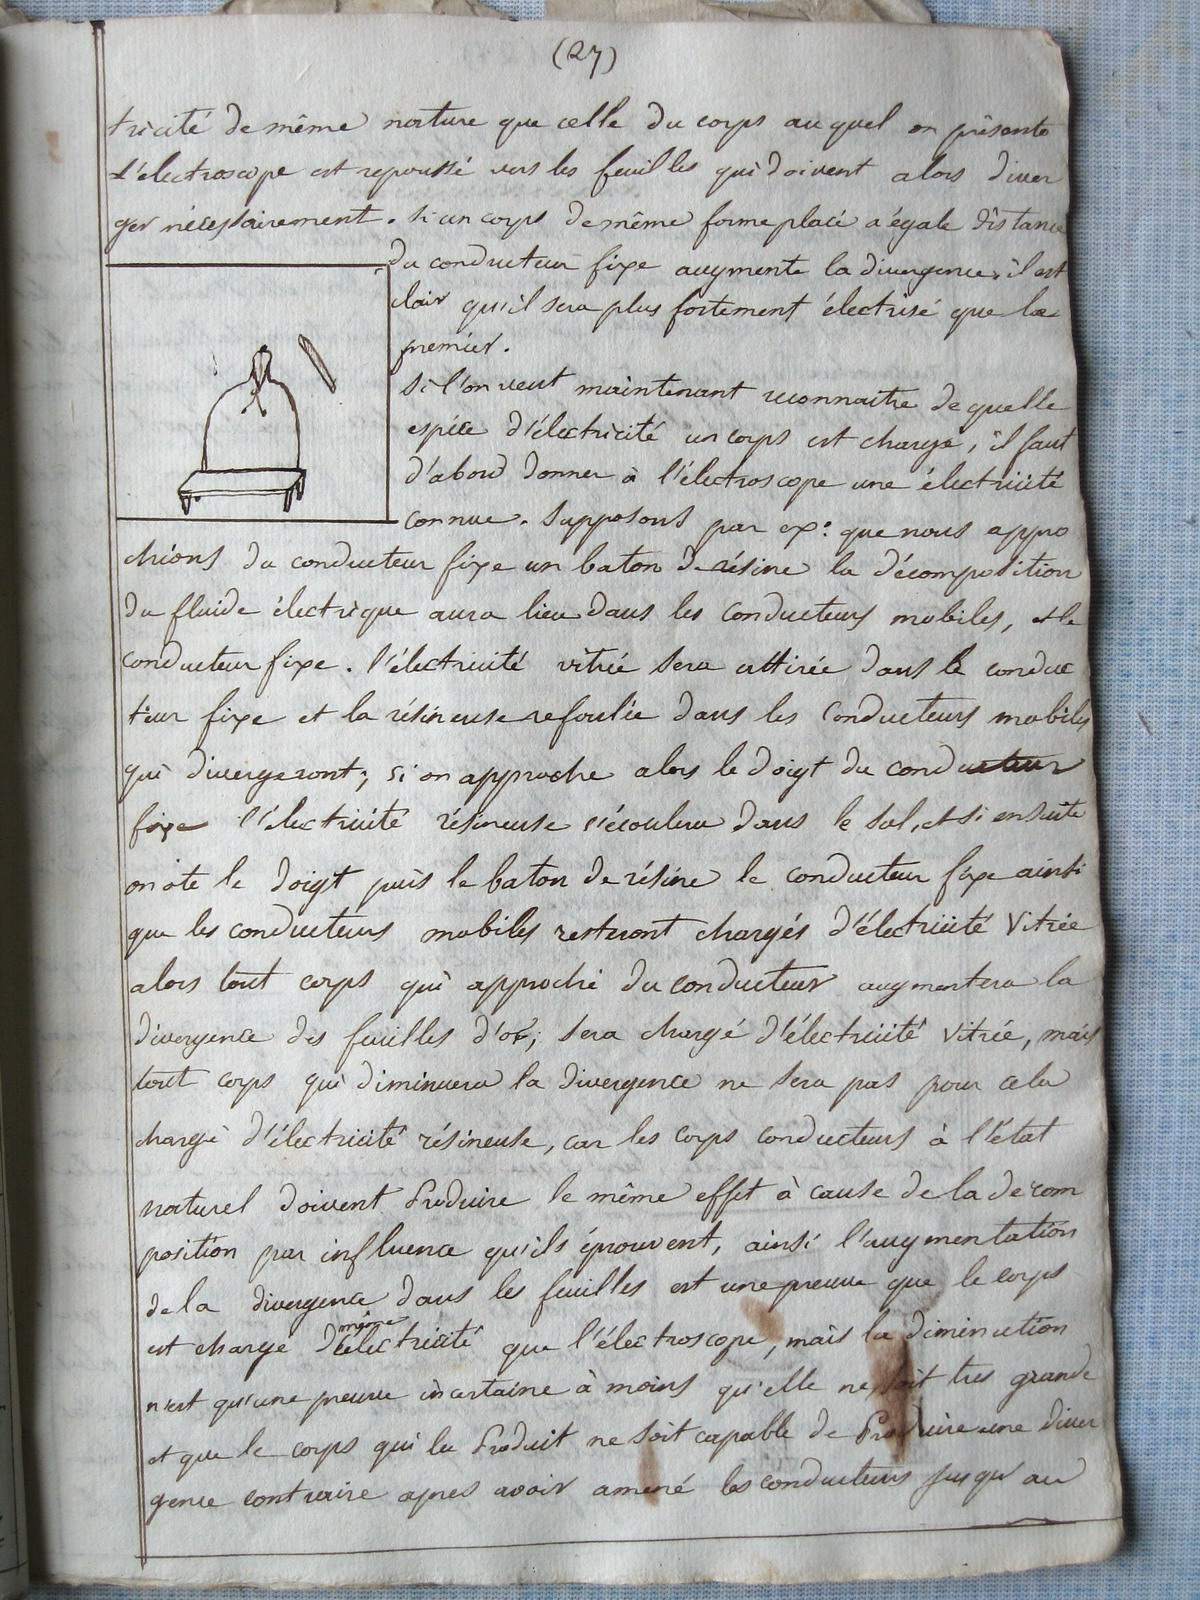 (27)
tricité de même nature que celle du corps auquel on présente
l'électroscope est repoussé vers les feuilles qui doivent alors diver
ger nécessairement. Si un corps de même forme placé a égale distance
du conducteur fixe augmente la divergence, il est
clair qu'il sera plus fortement électrisé que le
premier.
Si l'on veut maintenant reconnaitre de quelle
espéce d'électricité un corps est chargé, il faut
d'abord donner à l'électroscope une électricité
connue. Supposons par ex: que nous appro
chions du conducteur fixe un baton de résine la décomposition
du fluide électrique aura lieu dans les conducteurs mobiles, et le
conducteur fixe. l'électricité vitrée sera attirée dans le conduc
teur fixe et la résineuse refoulée dans les conducteurs mobiles
qui divergeront; si on approche alors le doigt du conducteur
fixe l'électricité résineuse s'écoulera dans le sol, et si ensuite
on ote le doigt puis le baton de résine le conducteur fixe ainsi
que les conducteurs mobiles resteront chargés d'électricité vitrée
alors tout corps qui approché du conducteur augmentera la
divergence des feuilles d'or, sera chargé d'électricité vitrée, mais
tout corps qui diminuera la divergence ne sera pas pour cela
chargé d'électricité résineuse, car les corps conducteurs à l'état
naturel doivent Produire le même effet à cause de la décom
position par influence qu'ils éprouvent, ainsi l'augmentation
de la divergence dans les feuilles est une preuve que le corps
est chargé d même électricité que l'électroscope, mais la diminution
n'est qu'une preuve incertaine à moins qu'elle ne soit tres grande
et que le corps qui la Produit ne soit capable de Produire une diver
gence contraire apres avoir amené les conducteurs jusqu'au